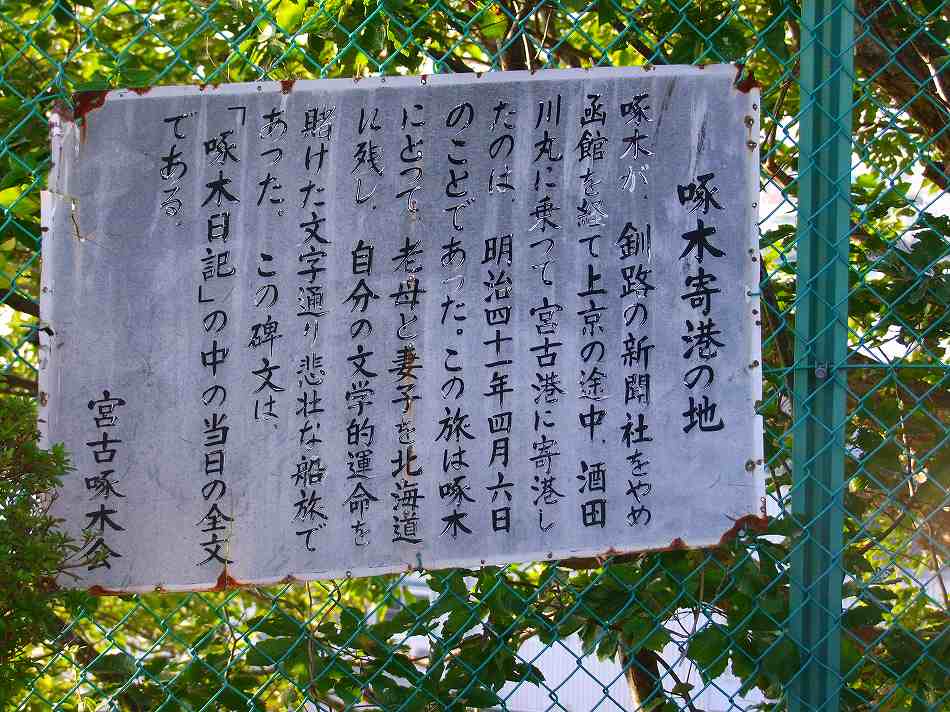 啄木寄港の地
啄木が、釧路の新聞社をやめ
函館を経て上京の途中、酒田
川丸に乗って宮古港に寄港し
たのは、明治四十一年四月六日
のことであった。この旅は啄木
にとって、老母と妻子を北海道
に残し、自分の文学的運命を
賭けた文字通り悲壮な船旅で
あった。この碑文は、
「啄木日記」の中の当日の全文
である。
宮古啄木会